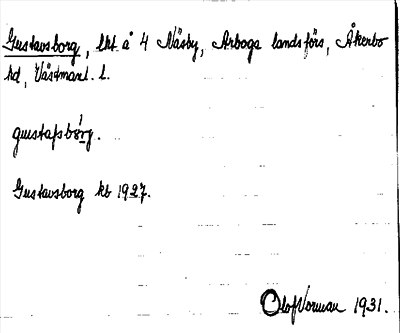 Gustavsborg, lht å 4 Näsby, Arboga landsförs, Åkerbo
hd, Västmanl. l.
gustafsbórj.
Gustavsborg kb 1927.
Olof Norman 1931.